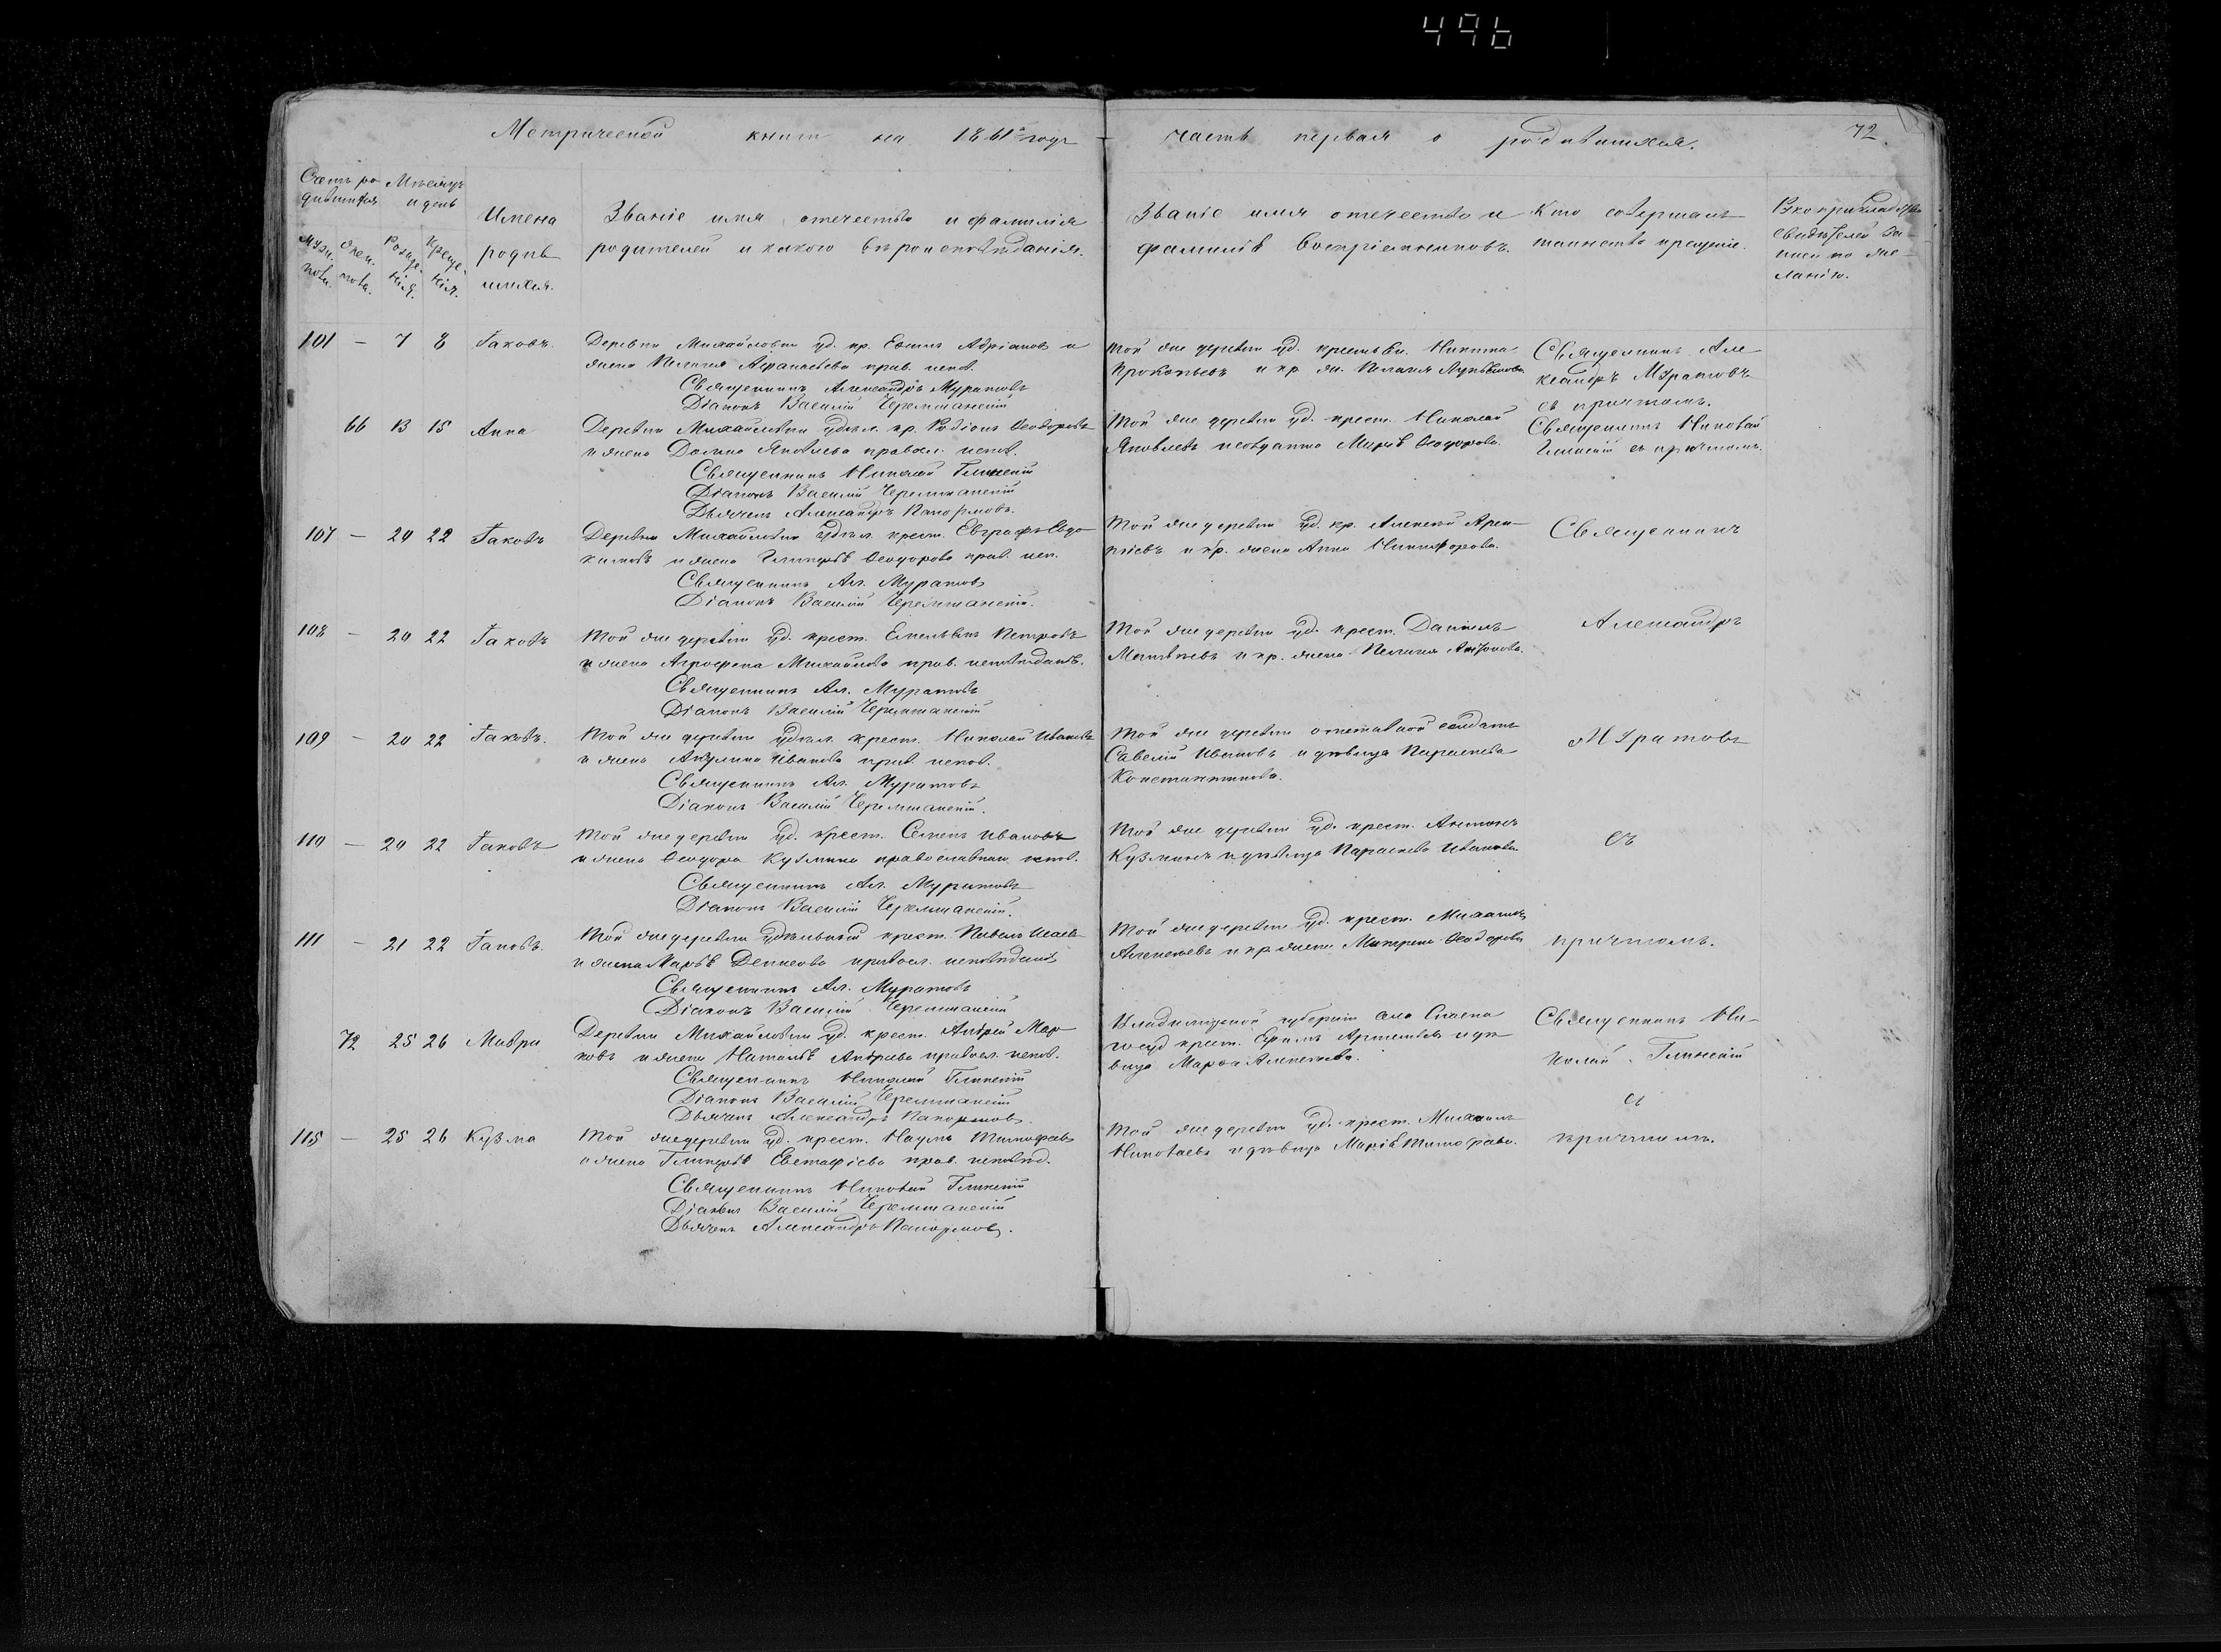 496
Метрической книги на 1861й годъ часть первая о родившихся. 72
Счетъ ро- Мѣсяцъ
дившихся и день
Мужс- Жен- Рожде- Креще-
кова. кова. нія. нія.
Имена
родив
шихся.
Званіе имя, отечество и фамилія
родителей и какого вѣроисповѣданія.
Званіе имя отечество и
фамилія Воспріемниковъ.
Кто совершалъ
таинство крещенія.
Рукоприкладство
свидѣтелей за-
писи по же-
ланію.
101 — 7 8 Іаковъ.
Деревни Михайловки уд. кр. Адріановъ и
жена Пелагія Афанасьева прав. испов.
Священникъ Александръ Муратовъ
Діаконъ Василій Черемшанскій
Той же деревни уд. крестьян. Никита
Прокопьевъ и кр. ж. Пелагія
Священникъ Але
ксандръ Муратовъ
съ причтомъ.
66 13 15 Анна
Деревни Михайловки удѣл. кр. Родіонъ Ѳеодоровъ
и жена Домна Яковлева правосл. испов.
Священникъ Николай Глинскій
Діаконъ Василій Черемшанскій
Дьячекъ Александръ Панормовъ.
Той же деревни уд. крест. Николай
Яковлевъ и солдатка Марія Ѳеодорова.
Священникъ Николай
Глинскій съ причтомъ.
107 — 20 22 Іаковъ
Деревни Михайловки удѣл. крест. Евграфъ Евдо
кимовъ и жена Гликерія Ѳеодорова прав. исп.
Священникъ Ал. Муратовъ
Діаконъ Василій Черемшанскій.
Той же деревни уд. кр. Алексѣй
и кр. жена Анна Никифорова.
Священникъ
108 — 20 22 Іаковъ
Той же деревни уд. крест. Емельянъ Петровъ
и жена Агрофена Михайлова прав. исповѣданія.
Священникъ Ал. Муратовъ
Діаконъ Василій Черемшанскій
Той же деревни уд. крест. Даніилъ
Матвѣевъ и кр. жена Пелагія
Александръ
109 — 20 22 Іаковъ.
Той же деревни удѣл. крест. Николай Ивановъ
и жена Акулина Иванова прав. испов.
Священникъ Ал. Муратовъ
Діаконъ Василій Черемшанскій.
Той же деревни отставной солдатъ
Савелій Ивановъ и дѣвица Параскева
Константинова.
Муратовъ
110 — 20 22 Іаковъ
Той же деревни уд. крест. Семенъ Ивановъ
и жена Ѳеодора Кузмина православнаго испов.
Священникъ Ал. Муратовъ
Діаконъ Василій Черемшанскій.
Той же деревни уд. крест. Антонъ
Кузминъ и дѣвица Параскева Иванова.
съ
111 — 21 22 Іаковъ.
Той же деревни удѣльный крест. Павелъ Исаевъ
и жена Марія Денисова правосл. исповѣданія
Священникъ Ал. Муратовъ
Діаконъ Василій Черемшанскій
Той же деревни уд. крест. Михаилъ
Алексѣевъ и кр. жена Матрена Ѳеодорова
причтомъ.
72 25 26 Мавра
Деревни Михайловки уд. крест. Андрей Мар
ковъ и жена Наталія Андреева правосл. испов.
Священникъ Николай Глинскій
Діаконъ Василій Черемшанскій
Дьячекъ Александръ Панормовъ
Владимірской губерніи села
госуд крест. Артемьевъ и дѣ
вица Марѳа Алексѣева.
Священникъ Ни-
колай Глинскій
115 — 25 26 Кузма
Той же деревни уд. крест. Наумъ Тимофеевъ
и жена Гликерія Евстафіева прав. исповѣд.
Священникъ Николай Глинскій
Діаконъ Василій Черемшанскій
Дьячекъ Александръ Панормовъ.
Той же деревни уд. крест. Михаилъ
Николаевъ и дѣвица Марія Тимофеева.
съ
причтомъ.